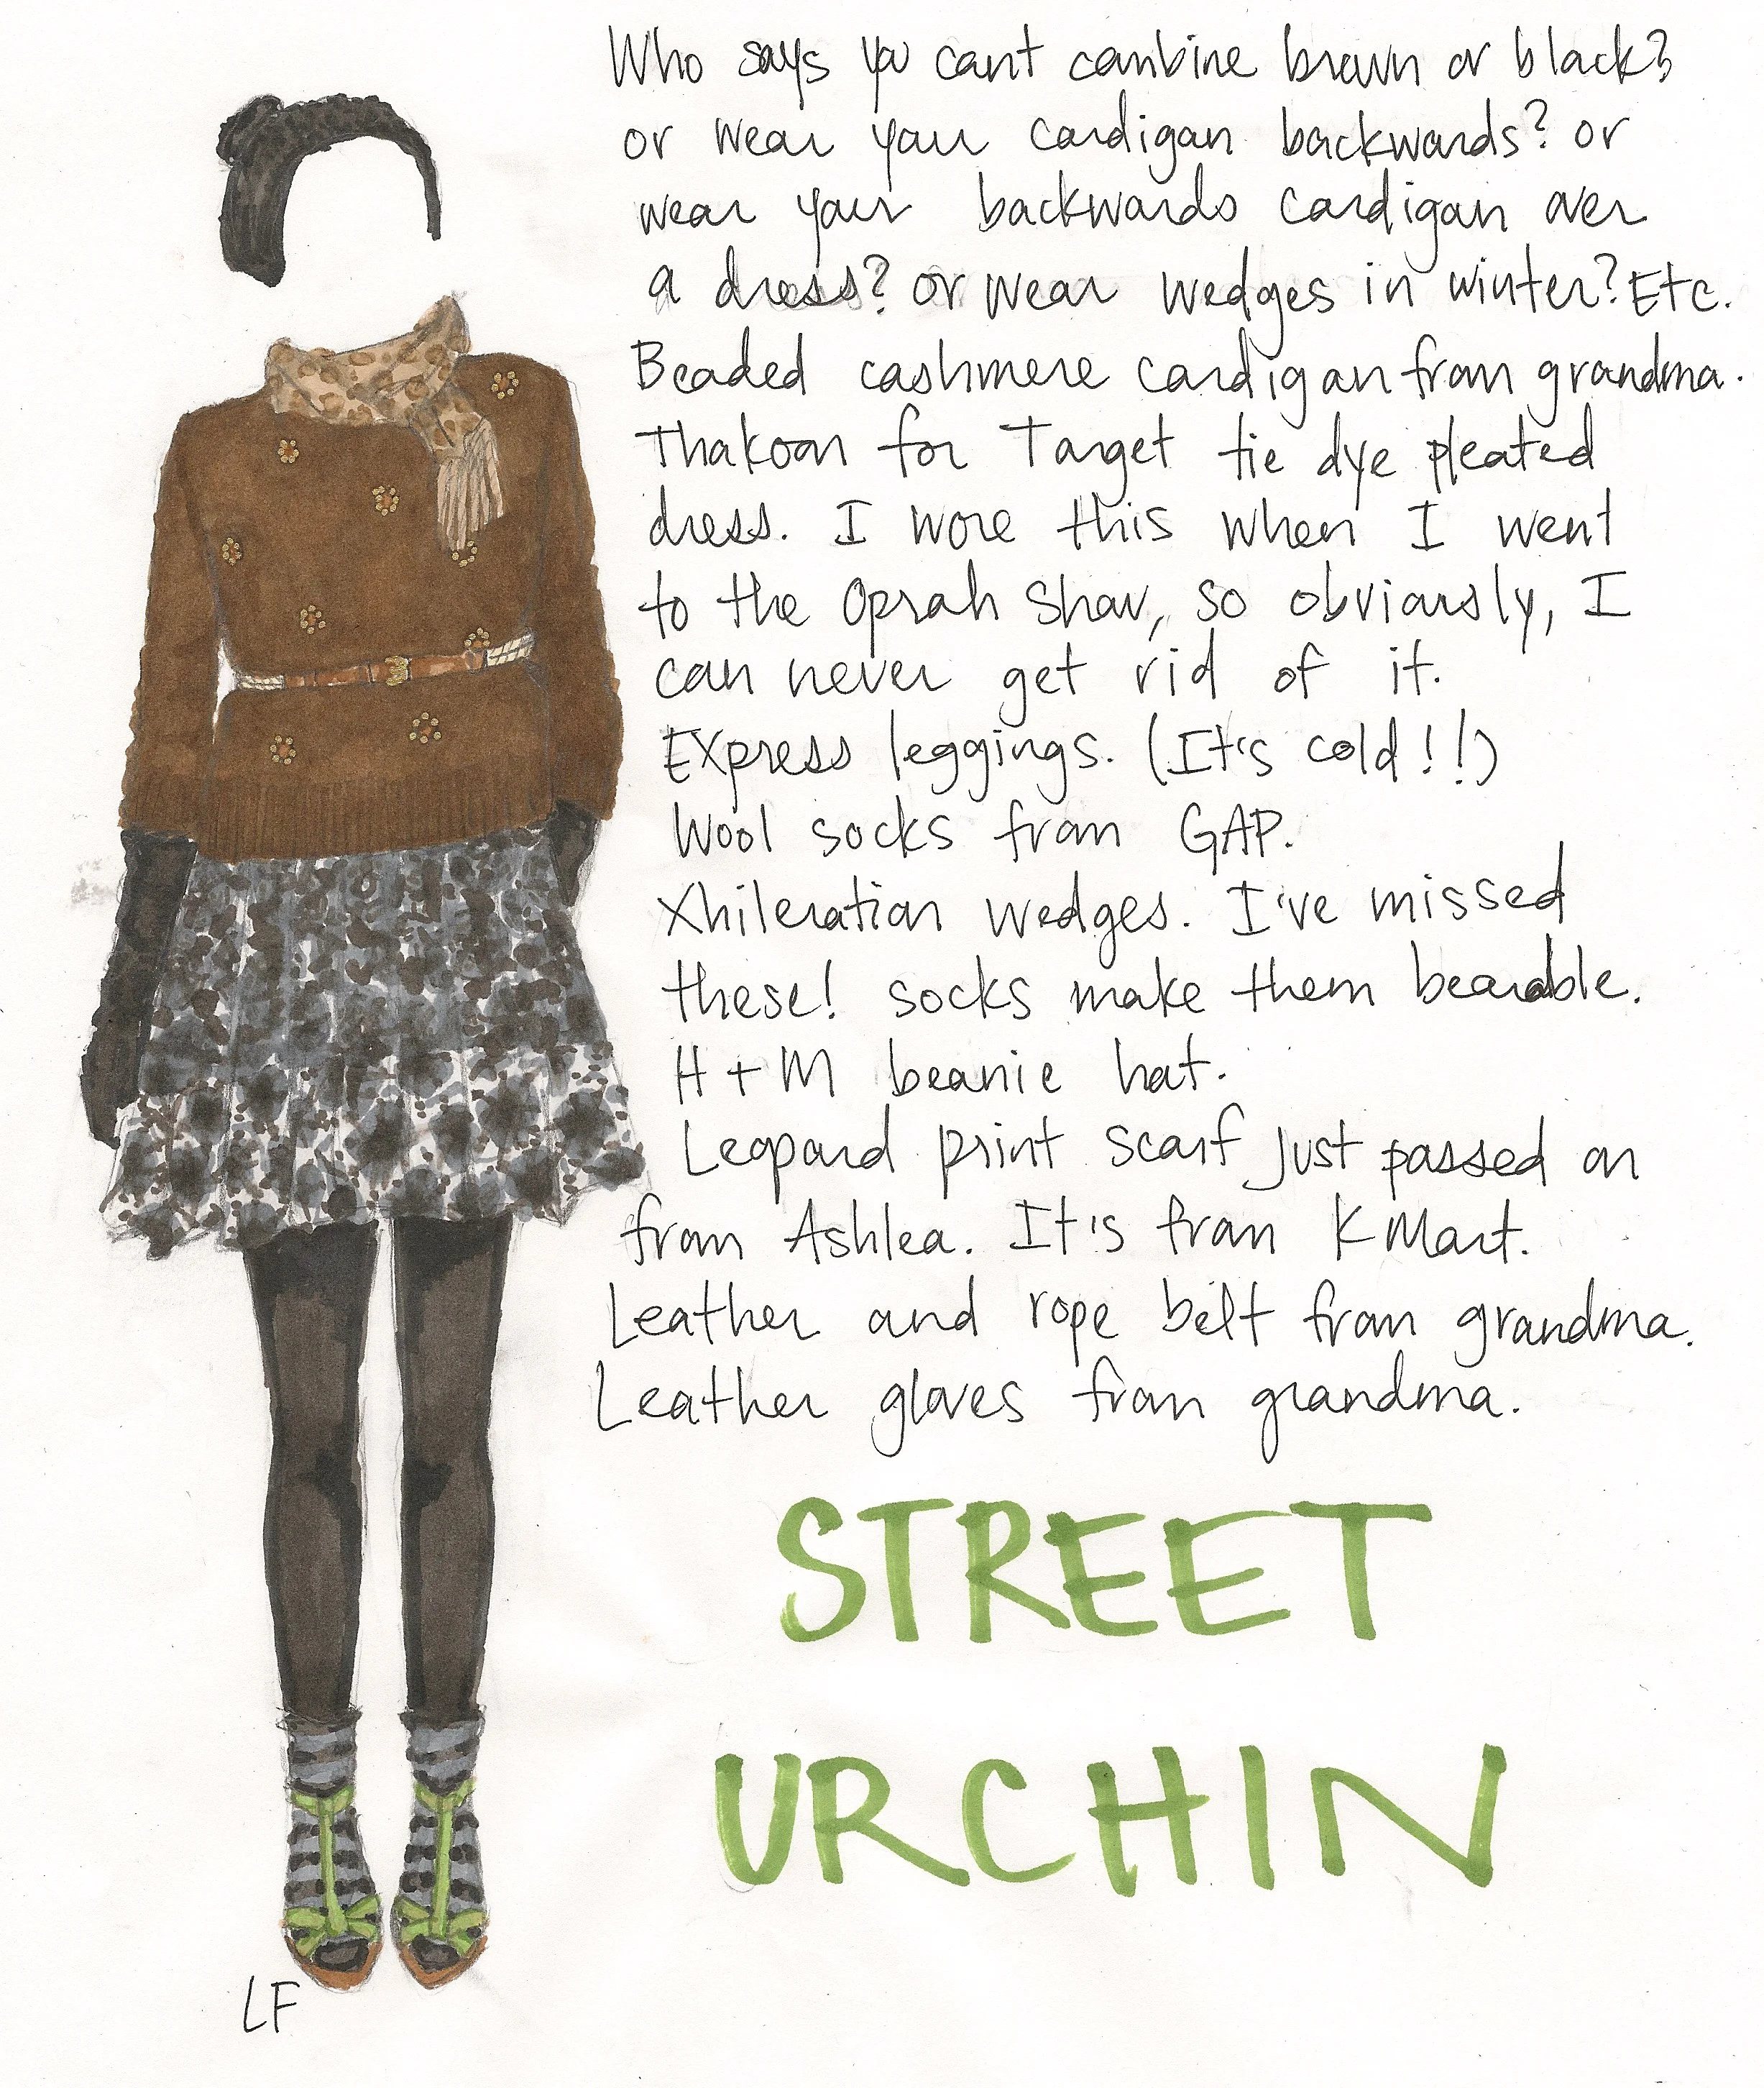 Who says you cant combine brown or black?
or wear your cardigan backwards? or
wear your backwards cardigan over
a dress? or wear wedges in winter? Etc.
Beaded cashmere cardigan from grandma.
Thakoon for Target tie dye pleated
dress. I wore this when I went
to the Oprah Show, so obviously, I
can never get rid of it.
Express leggings. (It's cold!!)
Wool socks from GAP.
Xhileration wedges. I've missed
these! socks make them bearable.
H+M beanie hat.
Leopard print scarf just passed on
from Ashlea. It's from K Mart.
Leather and rope belt from grandma.
Leather gloves from grandma.
STREET
URCHIN
LF